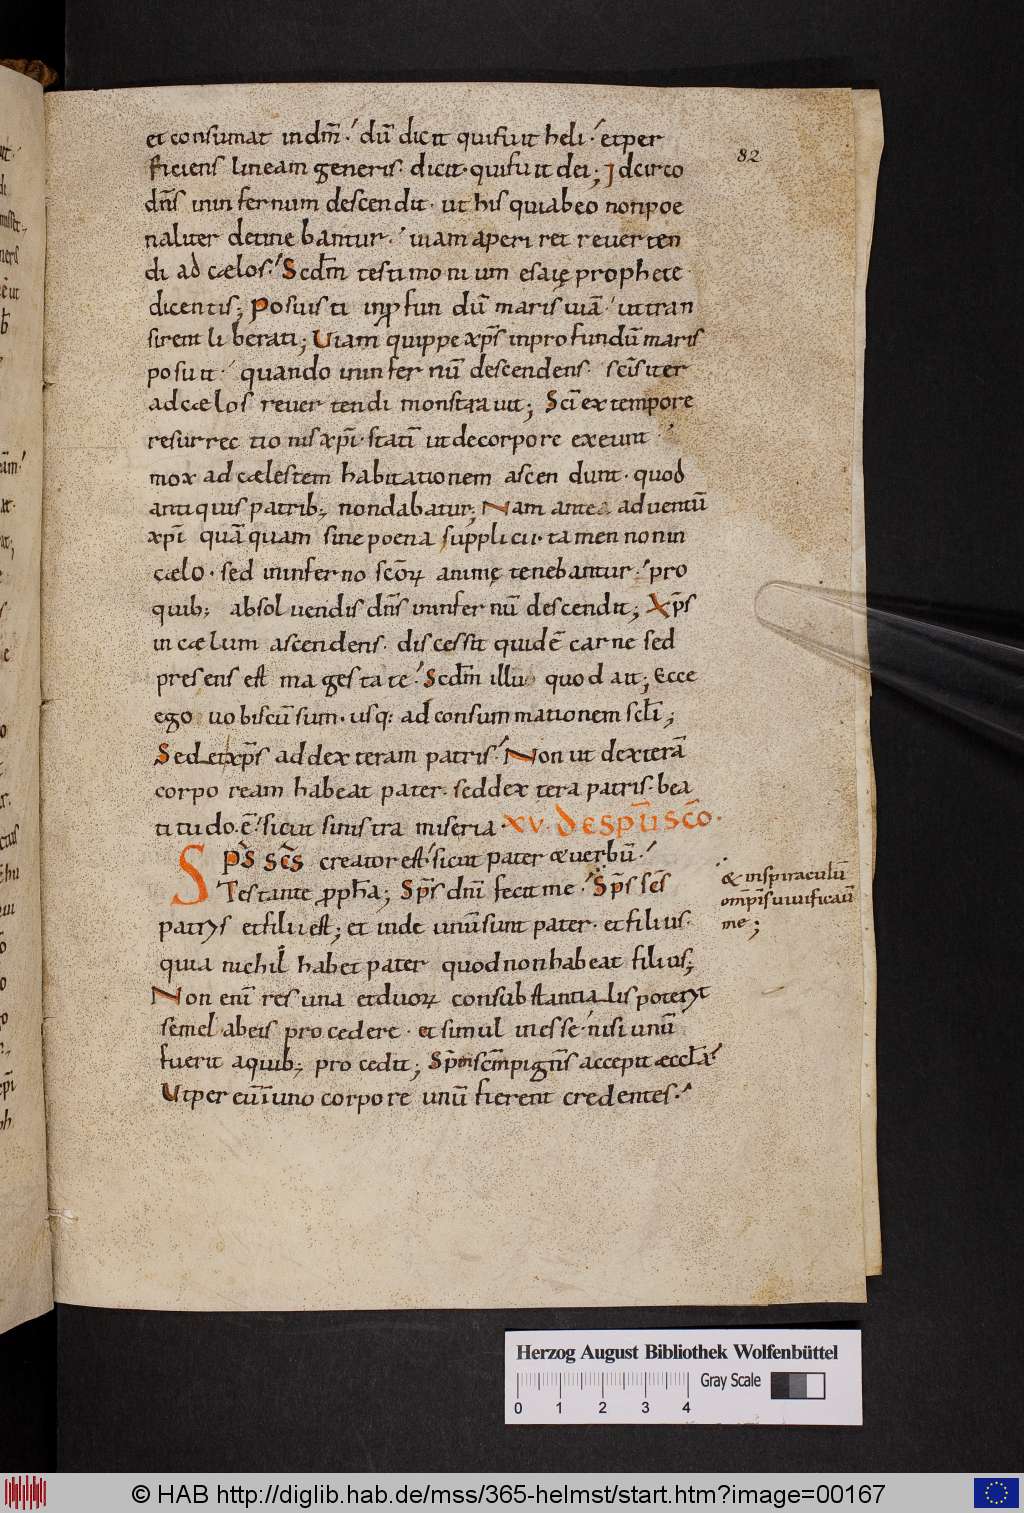 82
et consumat indm̄. dū dicit qui fuit heli. et per
ficiens lineam generis. dicit. qui fuit dei; Idcirco
dn̄s in infernum descendit. ut his qui ab eo non poe
naliter detinebantur. uiam aperiret reuerten
di ad cęlos. Scdm̄ testimonium esaię prophete
dicentis; Posuisti in profundū maris uiā. ut tran
sirent liberati; Uiam quippe xp̄s in profundū maris
posuit. quando in infernū descendens. sc̄is iter
ad cælos reuertendi monstrauit; Sc̄i ex tempore
resurrectionis xp̄i. statī ut de corpore exeunt
mox ad cælestem habitationem ascendunt. quod
antiquis patrib; non dabatur; Nam ante aduentū
xp̄i quāquam sine poena supplicii. tamen non in
cælo. sed in inferno sc̄oꝝ animę tenebantur. pro
quib; absoluendis dn̄s in infernū descendit; Xp̄s
in cælum ascendens. discessit quidē carne sed
presens est magestate. Scdm̄ illu quod ait; Ecce
ego uobiscū sum. usq; ad consummationem scl̄i;
Sedet xp̄s ad dexteram patris. Non ut dexterā
corpoream habeat pater. sed dextera patris. bea
titudo. ē. sicut sinistra miseria. XV. De sp̄u sc̄o.
Sp̄s sc̄s creator est. sicut pater & uerbū.
Testante propħa; Sp̄s dn̄i fecit me. Sp̄s sc̄s
& inspiraculū
om̄p̄is uiuificauī
me;
patris et filii est; et inde unū sunt pater. et filius.
quia nichil habet pater quod non habeat filius;
Non enī res una et duoꝝ consubstantialis poterit
semel ab eis procedere. et simul inesse. nisi unū
fuerit a quib; procedit; Sp̄m sc̄m pign̄s accepit æccl̄a.
Ut per eū ī uno corpore unū fierent credentes.
Herzog August Bibliothek Wolfenbüttel
Gray Scale
0 1 2 3 4
© HAB http://diglib.hab.de/mss/365-helmst/start.htm?image=00167